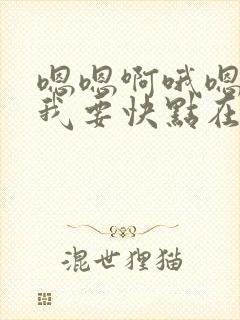 嗯嗯啊哦嗯
我要快點在
混世狸猫